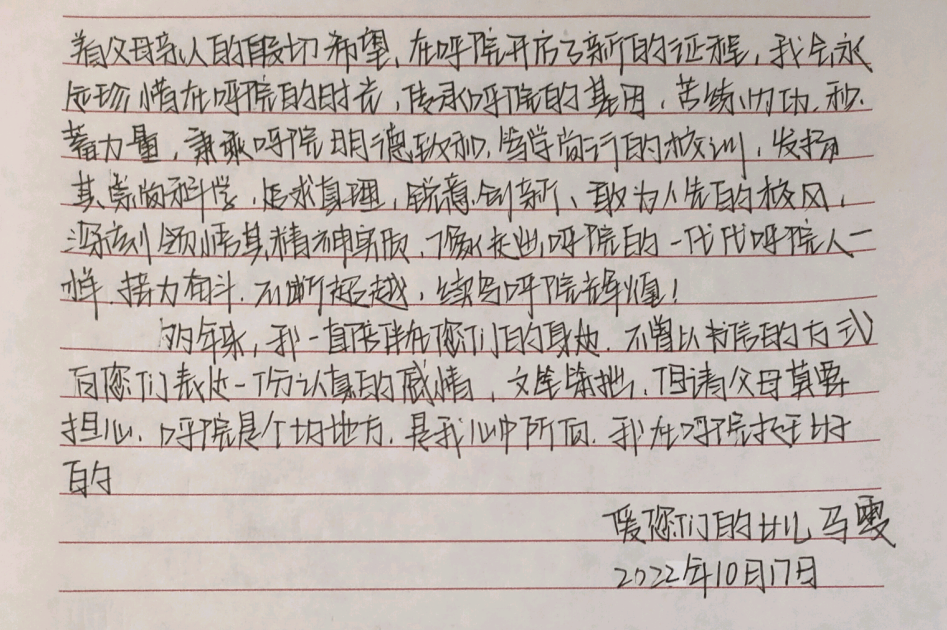 着父母亲人的殷切希望，在呼院开启了新的征程，我会永
远珍惜在呼院的时光，传承呼院的基因，苦练内功，积
蓄力量，秉承呼院明德致和，笃学尚行的校训，发扬
其崇尚科学，追求真理，锐意创新、敢为人先的校风，
深刻领悟其精神实质，像从走出呼院的一代代呼院人一
样，接力奋斗，不断超越，续写呼院辉煌！
多年来，我一直陪伴在您们的身边，不曾以书信的方式
向您们表达一份认真的感情，文笔笨拙，但请父母莫要
担心，呼院是个好地方，是我心中所向，我在呼院挺好
的
爱您们的女儿马雯
2022年10月17日